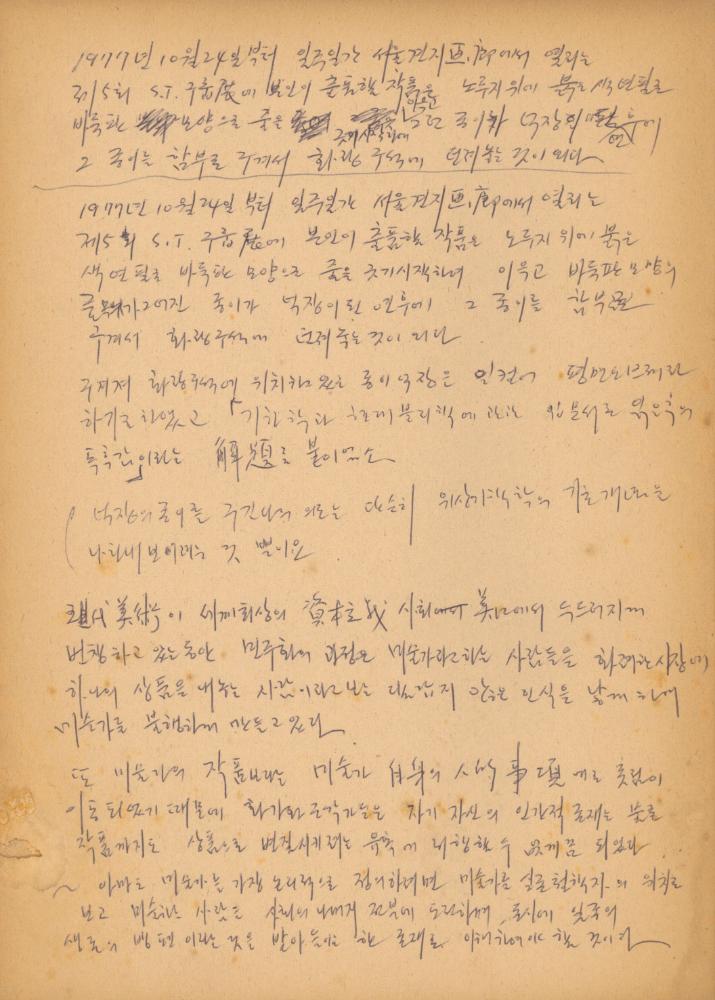 1977년 10월 24일 부터 일주일간 서울 견지画廊에서 열리는
제5회 S.T. 구룹展에 본인이 출품할 작품은 노루지 위에 붉은 색연필로
바둑판 모양으로 줄을
그 종이를 함부로 구겨서 화랑 구석에 던져놓는 것이 되다
1977년 10월 24일 부터 일주일간 서울 견지画廊에서 열리는
제5회 S.T. 구룹展에 본인이 출품할 작품은 노루지 위에 붉은
색연필로 바둑판 모양으로 줄을 긋기 시작하여 이윽고 바둑판 모양의
줄 그어진 종이가 넉장이 된 연후에 그 종이를 함부로
구겨서 화랑 구석에 던져두는 것이 되다.
구겨져 화랑구석에 위치하고 있는 종이 넉장은 일컬어 평면오브제라
하기로 하였고 「기하학과 현대물리학에 관한 엮은 후의
독후감」이라는 解題를 붙이었소
넉장의 종이를 구긴 나의 의도는 단순히 위상기하학의 기초개념을
나타내 보이려는 것 뿐이요.
現代美術이 세계최상의 資本主義 사회 美國에서 두드러지게
번창하고 있는 동안 민주화의 과정은 미술가라고 하는 사람들을 화려한 시장에
하나의 상품을 내놓는 사람이라고 보는 달갑지 않은 인식을 낳게 하여
미술가를 불행하게 만들고 있다.
또 미술가의 작품보다는 미술가 自身의 人的事項에로 촛점이
이동되었기 때문에 화가와 조각가들은 자기 자신의 인간적 존재는 물론
작품까지도 상품으로 변질시키려는 유혹에 대항할 수 없게끔 되었다...
아마도 미술가는 가장 논리적으로 정의하려면 미술가를 실존철학자의 위치로
보고 미술하는 사람은 사회의 나머지 전부에 도전하며, 동시에 일종의
생존의 방편이라는 것을 받아들이는 한 존재로 이해하여야 할 것이다